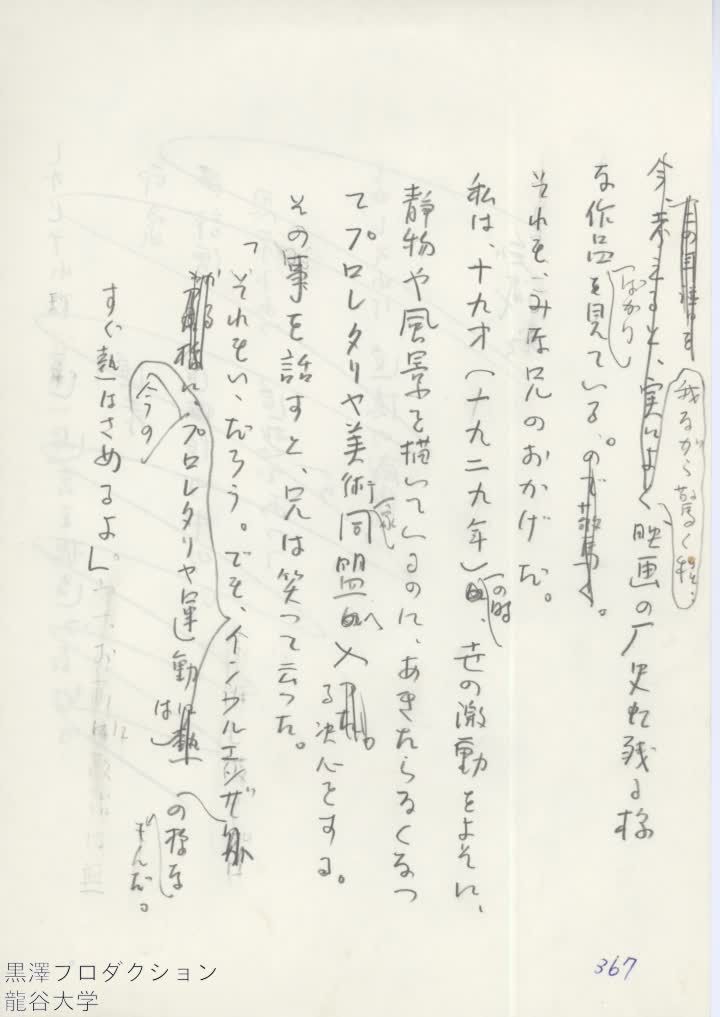 今、考えると、実によく映画の歴史に残る様
我ながら驚く程、
な作品を見ている。ので驚く。
ばかり
それも、みな兄のおかげだ。
私は、十九才(十九二九年)、世の激動をよそに、
の時
静物や風景を描いているのに、あきたらなくなっ
てプロレタリヤ美術同盟へ入る決心をする。
家
その事を話すと、兄は笑って云った。
「それもいゝだろう。でも、インフルエンザ
の様な
もんだ。
今の
プロレタリヤ運動は
すぐ熱はさめるよ」
367
黒澤プロダクション
龍谷大学